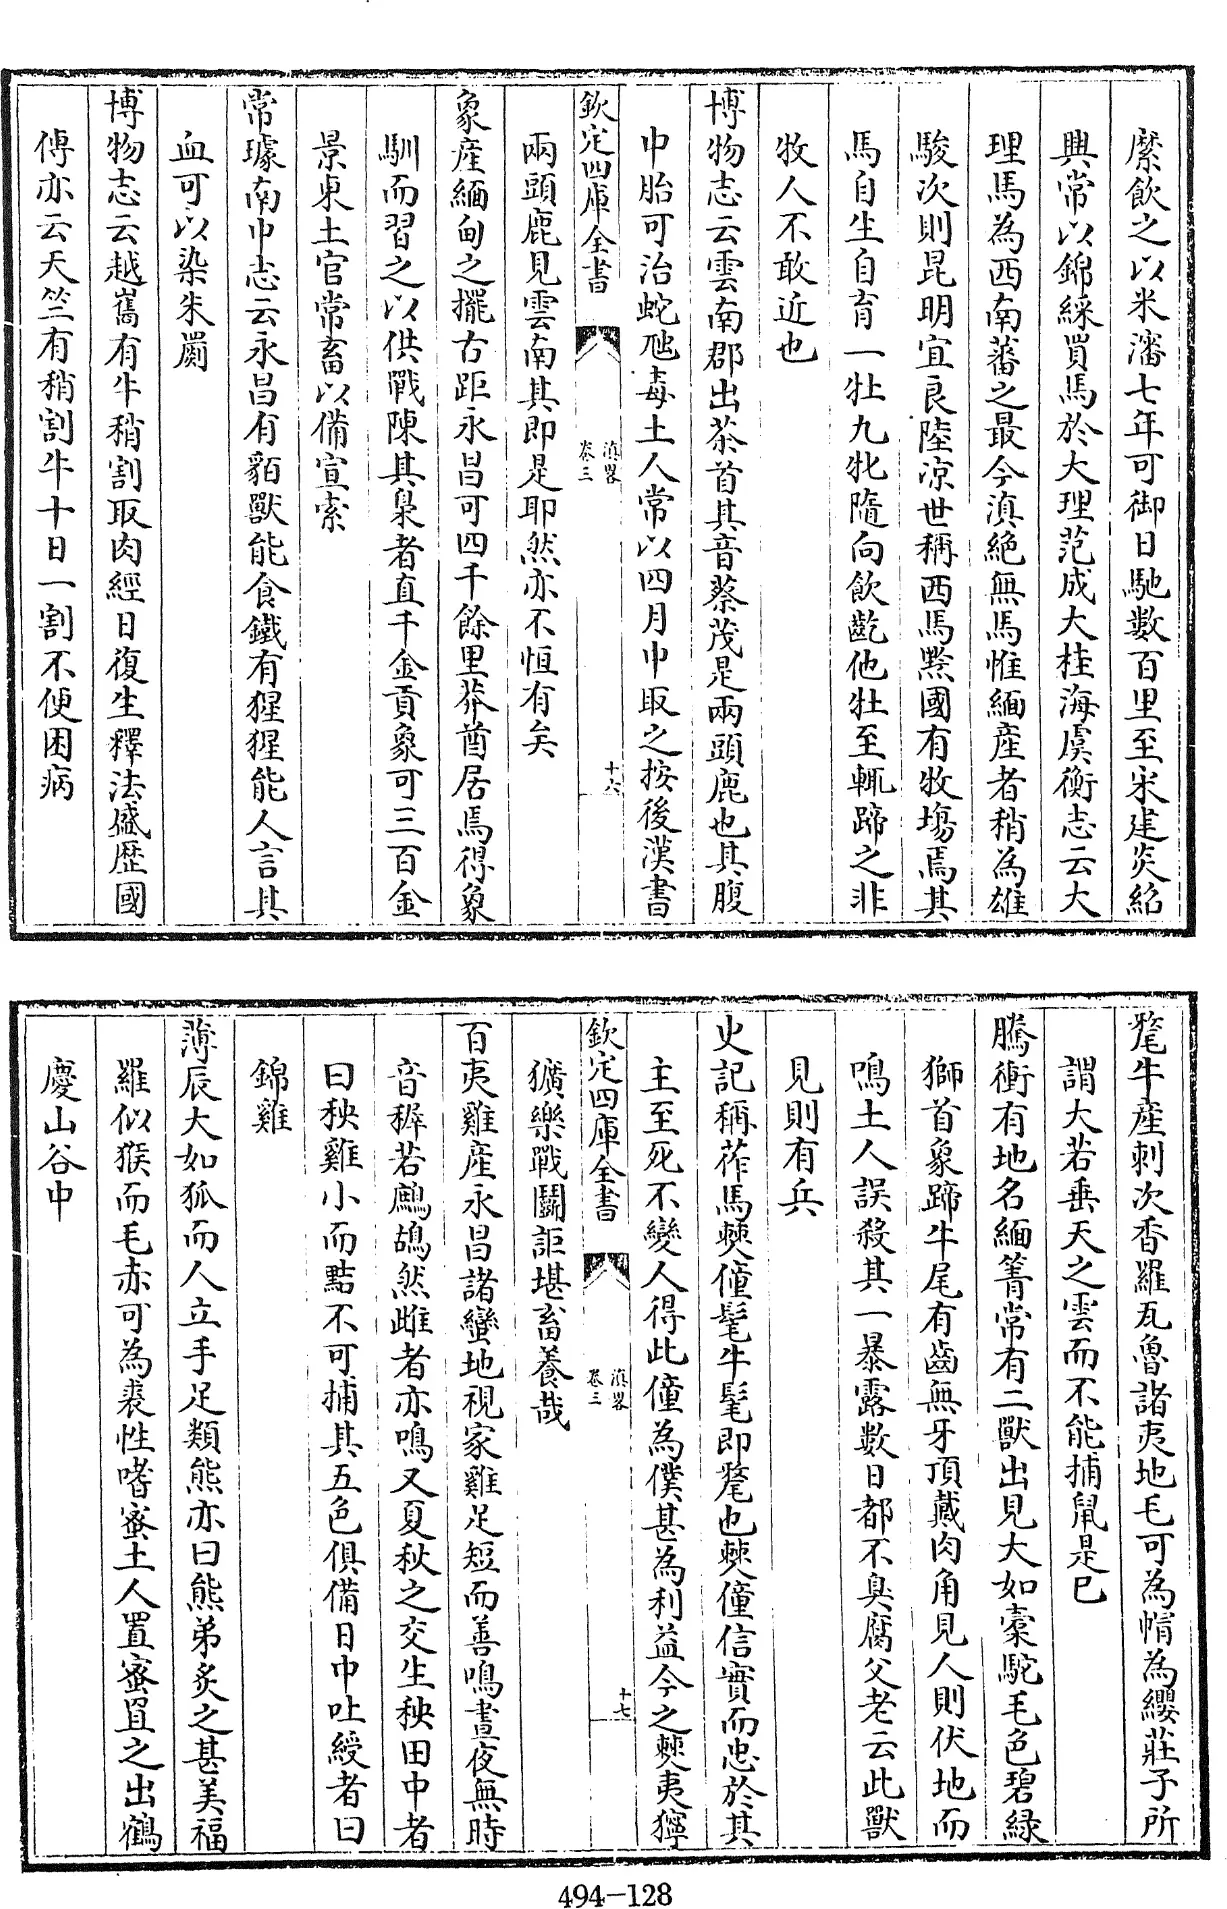 縻飲之以米瀋七年可御日馳數百里至宋建炎紹
興常以錦綵買馬於大理范成大桂海虞衡志云大
理馬為西南蕃之最今滇絶無馬惟緬産者稍為雄
駿次則昆明宜良陸涼世稱西馬黙國有牧塲焉其
馬自生自育一牡九牝隨向飲齕他牡至輒蹄之非
牧人不敢近也
博物志云雲南郡出茶首其音蔡茂是兩頭鹿也其腹
中胎可治蛇虺毒土人常以四月中取之按後漢書
欽定四庫全書
滇畧
卷三
十六
兩頭鹿見雲南其即是耶然亦不恒有矣
象産緬甸之擺古距永昌可四千餘里莽酋居焉得象
馴而習之以供戰陳其梟者直千金貢象可三百金
景東土官常畜以備宣索
常璩南中志云永昌有貊獸能食鐵有猩猩能人言其
血可以染朱罽
博物志云越嶲有牛稍割取肉經日復生釋法盛歷國
傳亦云天竺有稍割牛十日一割不便困病
氂牛産刺次香羅瓦魯諸夷地毛可為帽為纓莊子所
謂大若垂天之雲而不能捕鼠是已
騰衝有地名緬箐常有二獸出見大如槖駝毛色碧綠
獅首象蹄牛尾有齒無牙頂戴肉角見人則伏地而
鳴土人誤殺其一暴露數日都不臭腐父老云此獸
見則有兵
史記稱莋馬僰僮髦牛髦即氂也僰僮信實而忠於其
主至死不變人得此僮為僕甚為利益今之僰夷獰
欽定四庫全書
滇畧
卷三
十七
獷樂戰鬭詎堪畜養哉
百夷雞産永昌諸蠻地視家雞足短而善鳴晝夜無時
音穉若鷓鴣然雌者亦鳴又夏秋之交生秧田中者
曰秧雞小而黠不可捕其五色俱備日中吐綬者曰
錦雞
薄辰大如狐而人立手足類熊亦曰熊弟炙之甚美福
羅似猴而毛赤可為裘性嗜蜜土人置蜜罝之出鶴
慶山谷中
494-128